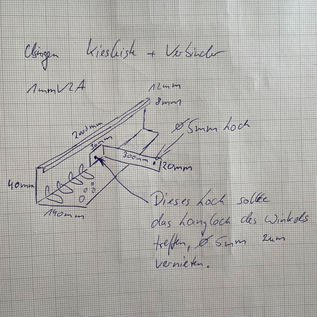 Kiesleiste + Verbinder
1mm V2A
12mm
8mm
2000mm
Ø 5mm Loch
300mm
20mm
40mm
140mm
Dieses Loch sollte
das Langloch des Winkels
treffen, Ø 5mm zum
vernieten.